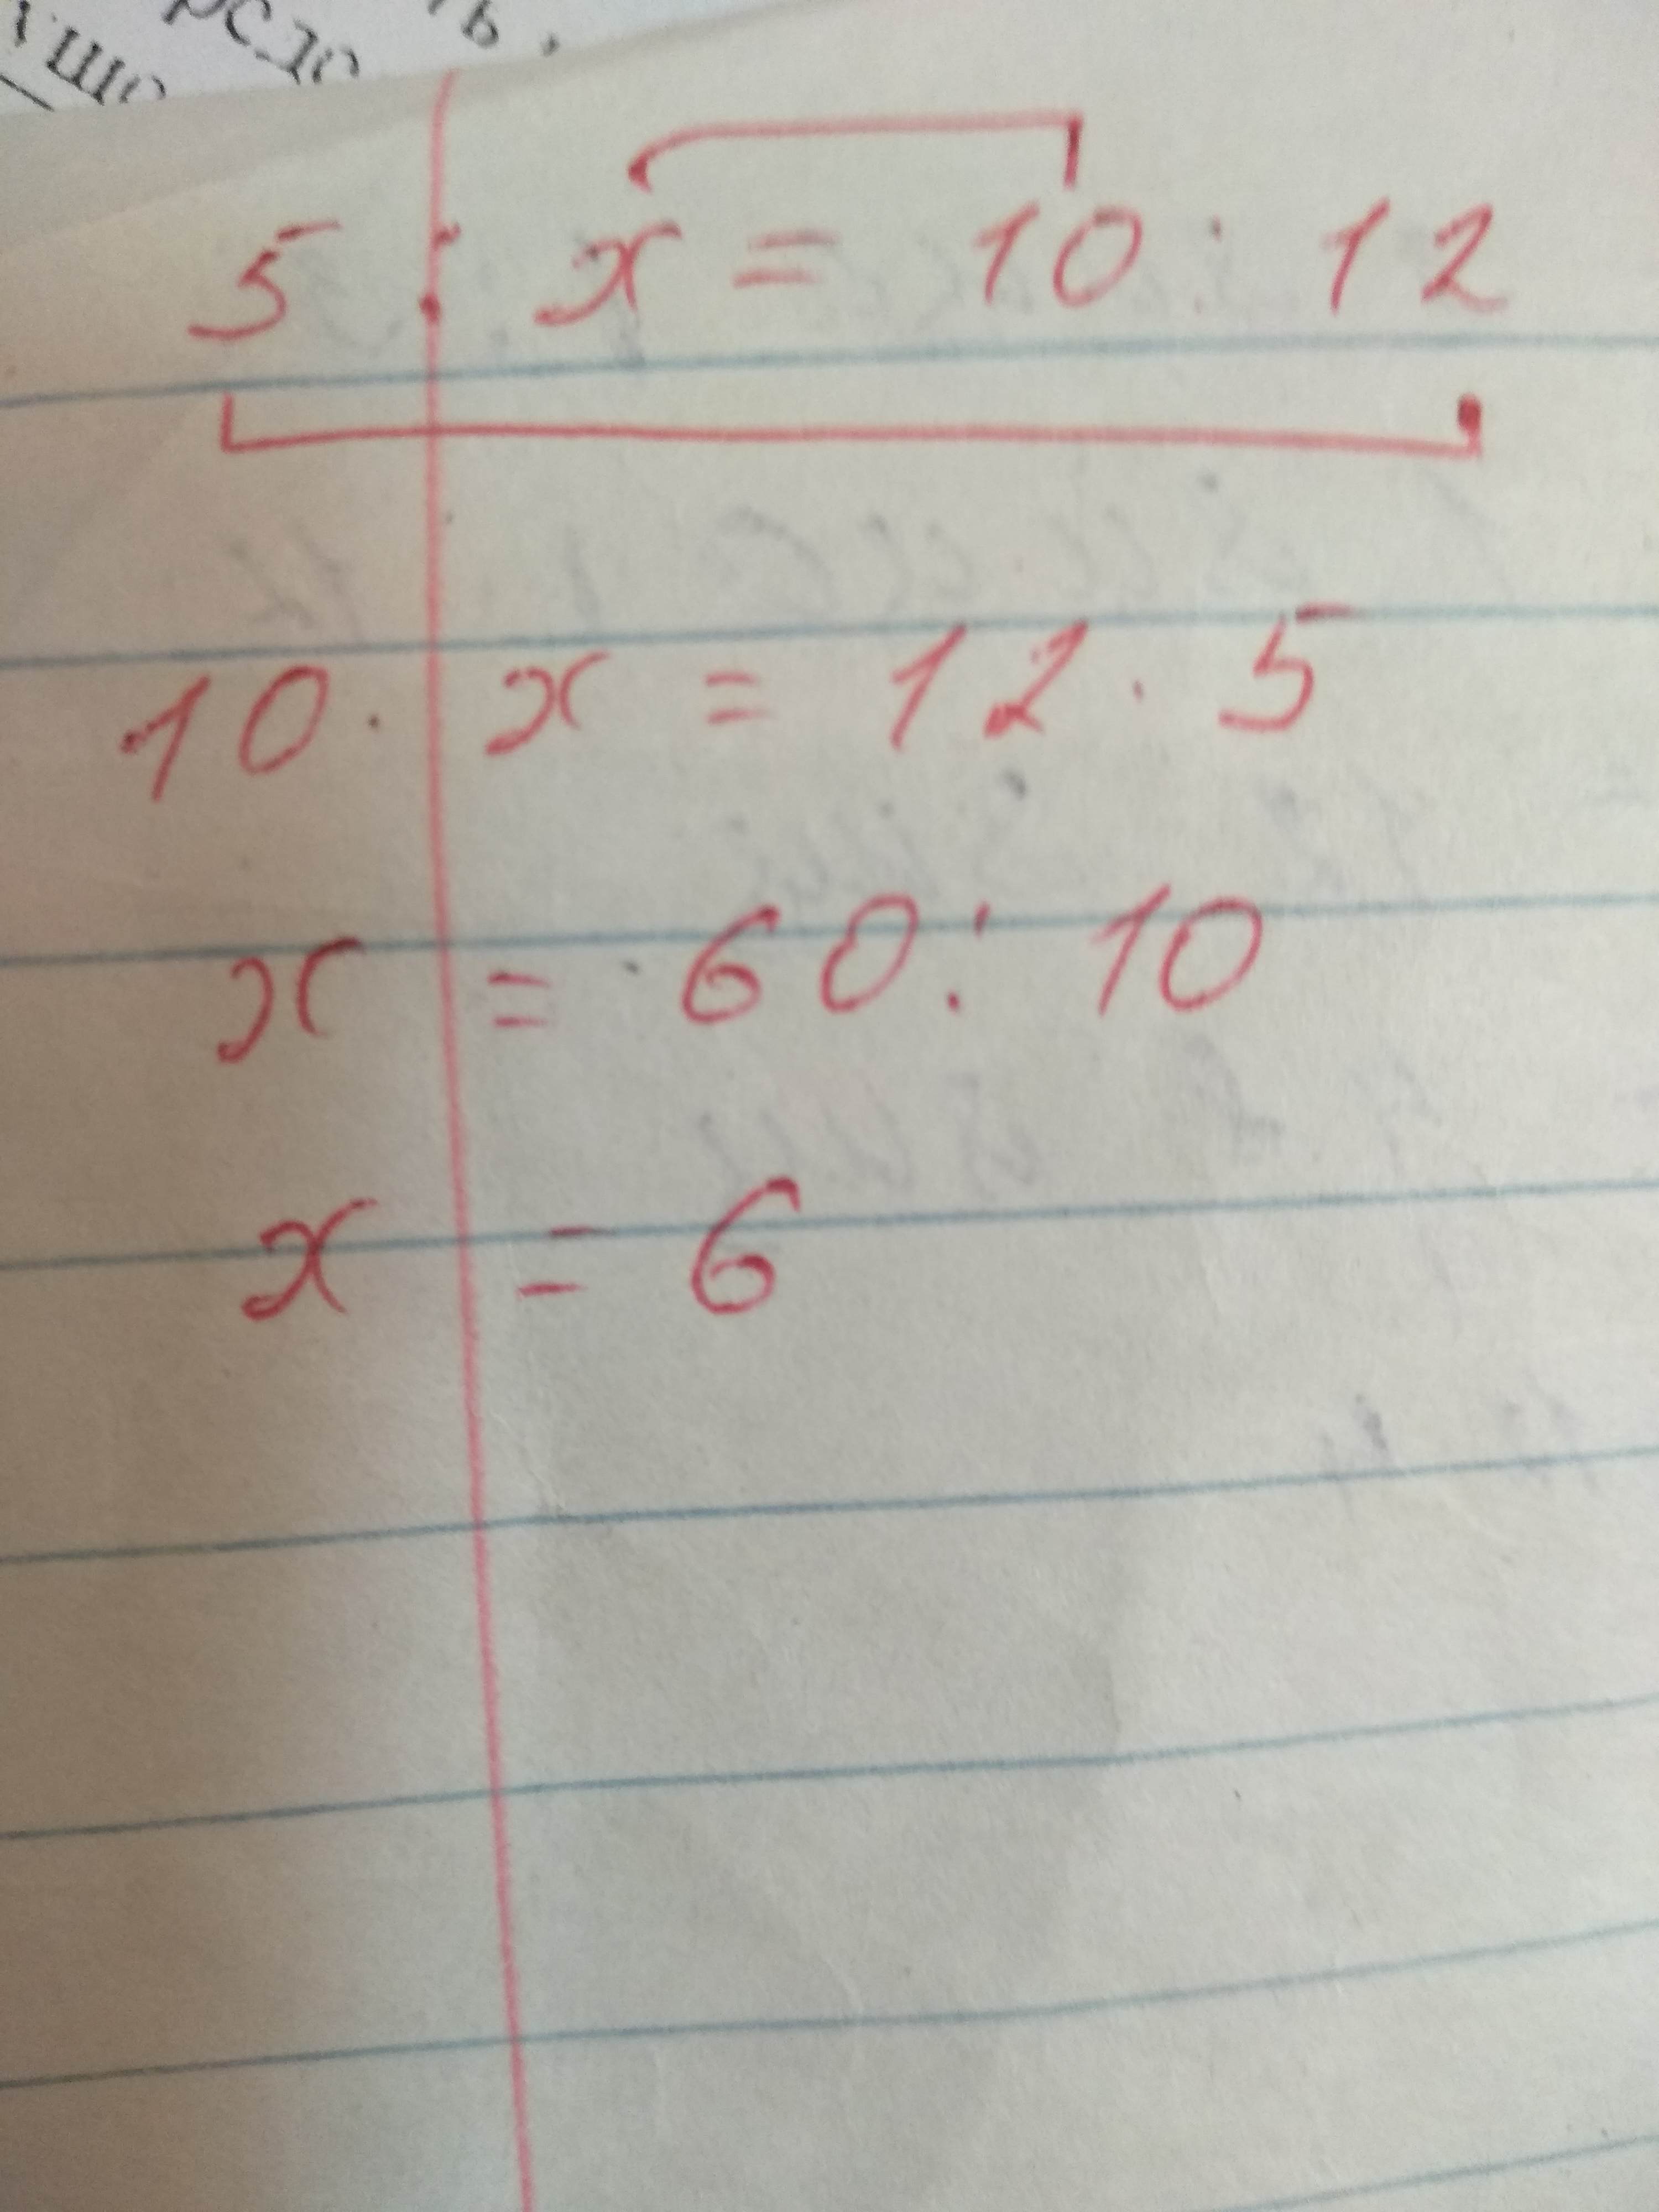 5 : x = 10 : 12
10 · x = 12 · 5
x = 60 : 10
x = 6